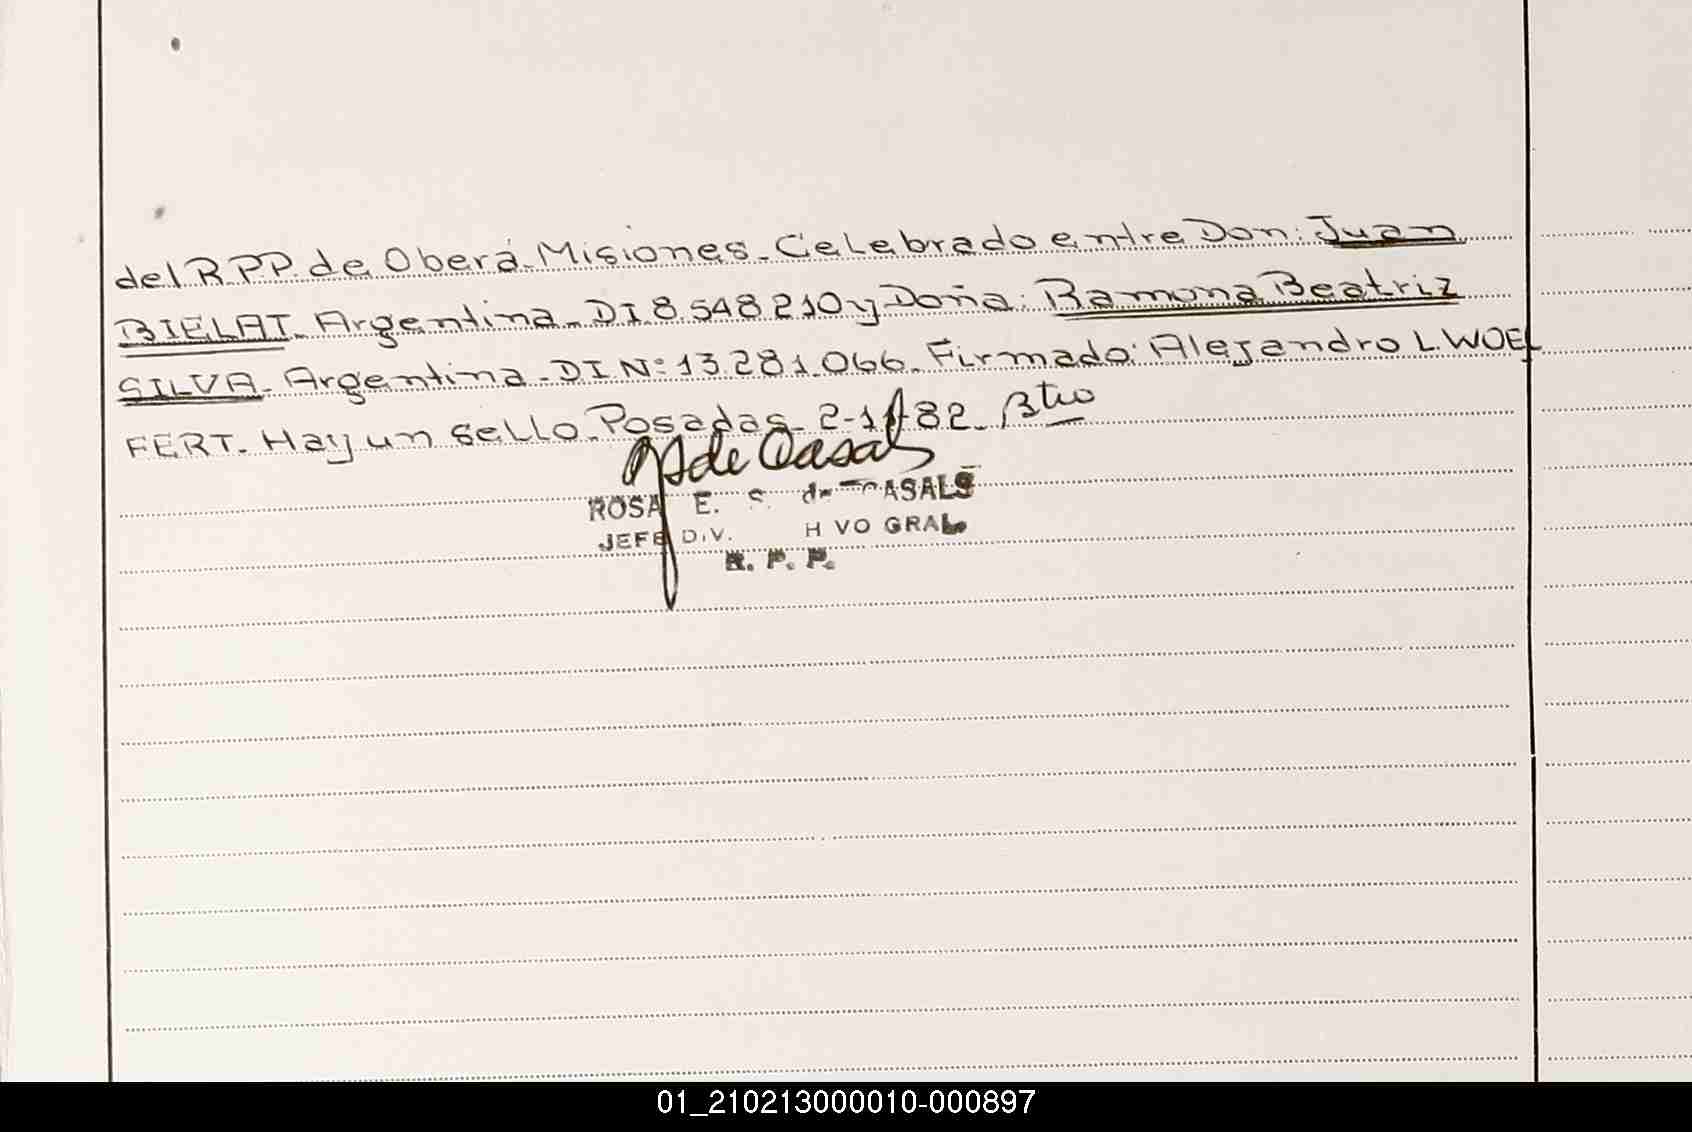 del R.P.P. de Oberá Misiones. Celebrado entre Don: Juan
BIELAT. Argentina. DI 8.548210 y Doña: Ramona Beatriz
SILVA. Argentina. DI Nº 13.281.066. Firmado: Alejandro L WOEL
FERT. Hay un sello. Posadas. 2-11-82.
de Casals
ROSA E. S. de CASALS
JEFE DIV. H VO GRAL
R. P. P.
01_210213000010-000897